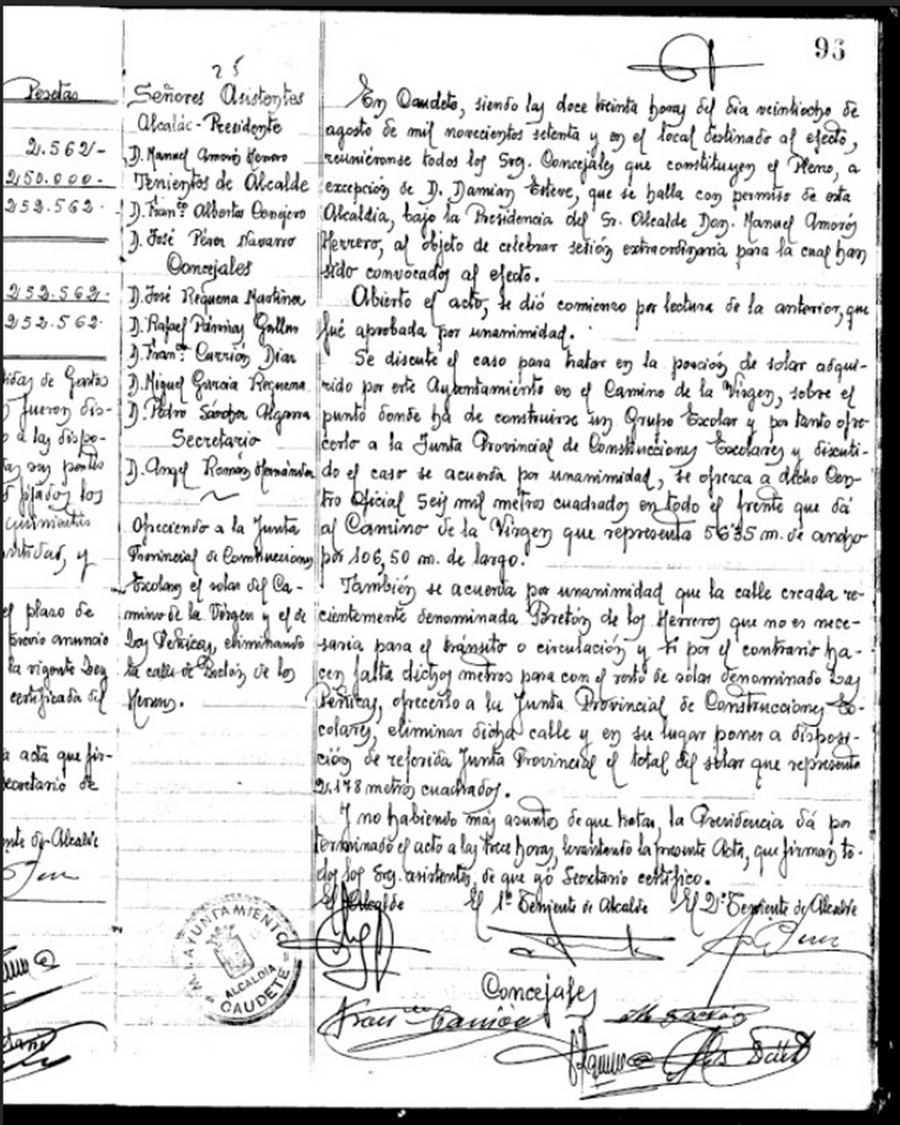 93
25
Pesetas
2.562-
250.000-
252.562-
252.562-
252.562-
Señores Asistentes
Alcalde-Presidente
D. Manuel Amorós Herrero
Tenientes de Alcalde
D. Franco Albertos Conejero
D. José Pérez Navarro
Concejales
D. José Requena Martínez
D. Rafael Pármas Gollus
D. Franco Carrión Díaz
D. Miguel García Requena
D. Pedro Sánchez Algarra
Secretario
D. Angel Román Hernández
Ofreciendo a la Junta
Provincial de Construcciones
Escolares el solar del Ca-
mino de la Virgen y el de
Las Peñicas, eliminando
la calle de Bretón de los
Herreros.
idas de Gastos
fueron dis-
a las dispo-
fijados los
y
el plazo de
previo anuncio
la vigente Ley
certificada del
acta que fir-
Secretario de
de Alcalde
En Caudete, siendo las doce treinta horas del día veintiocho de
agosto de mil novecientos setenta y en el local destinado al efecto,
reuniéronse todos los Sres. Concejales que constituyen el Pleno, a
excepción de D. Damian Esteve, que se halla con permiso de esta
Alcaldía, bajo la Presidencia del Sr. Alcalde Don. Manuel Amorós
Herrero, al objeto de celebrar sesión extraordinaria para la cual han
sido convocados al efecto.
Abierto el acto, se dió comienzo por lectura de la anterior, que
fué aprobada por unanimidad.
Se discute el caso para tratar en la porción de solar adqui-
rido por este Ayuntamiento en el Camino de la Virgen, sobre el
punto donde ha de construirse un Grupo Escolar y por tanto ofre-
cerlo a la Junta Provincial de Construcciones Escolares y discuti-
do el caso se acuerda por unanimidad, se ofrezca a dicho Cen-
tro Oficial Seis mil metros cuadrados en todo el frente que dá
al Camino de la Virgen que representa 56'35 m. de ancho
por 106,50 m. de largo.
También se acuerda por unanimidad que la calle creada re-
cientemente denominada Bretón de los Herreros que no es nece-
saria para el tránsito o circulación y si por el contrario ha-
cen falta dichos metros para con el resto de solar denominado Las
Peñicas, ofrecerlo a la Junta Provincial de Construcciones Es-
colares, eliminar dicha calle y en su lugar poner a disposi-
ción de referida Junta Provincial el total del solar que representa
2.178 metros cuadrados.
Y no habiendo más asuntos de que tratar, la Presidencia dá por
terminado el acto a las trece horas, levantando la presente Acta, que firman to-
dos los Sres. asistentes, de que yó Secretario certifico.
El Alcalde El 1º Teniente de Alcalde El 2º Teniente de Alcalde
Concejales
Franco Carrión
M. AYUNTAMIENTO
ALCALDIA
CAUDETE